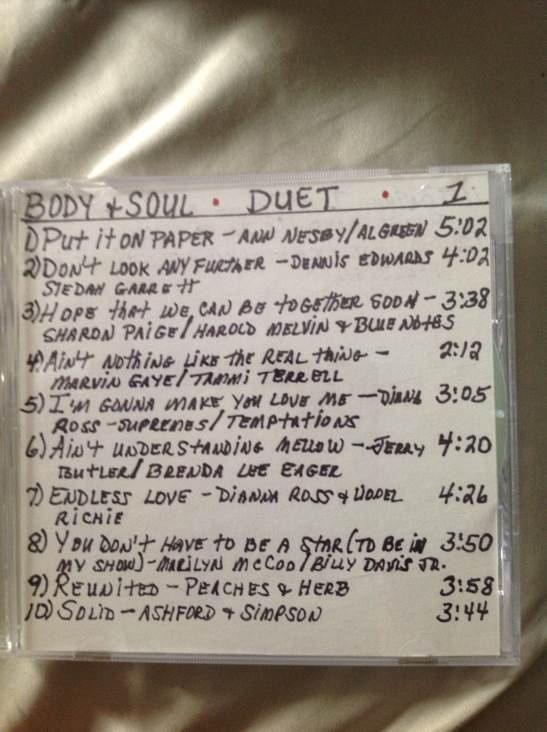 BODY & SOUL • DUET • 1
1) Put it ON PAPER - ANN NESBY/AL GREEN 5:02
2) DON't LOOK ANY FURTHER - DENNIS EDWARDS 4:02
SIEDAH GARRETT
3) HOPE that WE CAN BE toGEtHER SOON - 3:38
SHARON PAIGE/HAROLD MELVIN & BLUENOTES
4) AIN't NOtHING LIKE tHE REAL tHING - 2:12
MARVIN GAYE/TAMMI TERRELL
5) I'M GONNA MAKE YOU LOVE ME - DIANA 3:05
ROSS - SUPREMES/TEMPtAtIONS
6) AIN't UNDERSTANDING MELLOW - JERRY 4:20
BUtLER/BRENDA LEE EAGER
7) ENDLESS LOVE - DIANNA ROSS & LIONEL 4:26
RICHIE
8) YOU DON't HAVE to BE A StAR (TO BE IN 3:50
MY SHOW) - MARILYN McCOO/BILLY DAVIS JR.
9) REUNITED - PEACHES & HERB 3:58
10) SOLID - ASHFORD & SIMPSON 3:44